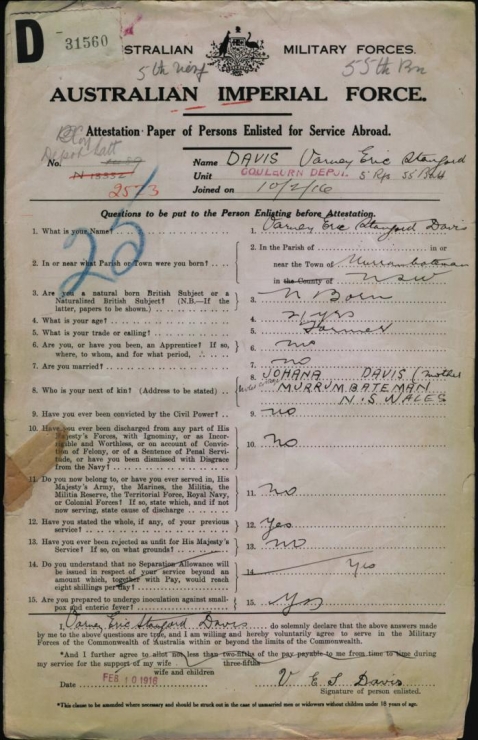 D
31560
AUSTRALIAN MILITARY FORCES.
5th reinf 55th Bn
AUSTRALIAN IMPERIAL FORCE.
Attestation Paper of Persons Enlisted for Service Abroad.
Depot Batt
No. N 18352 2573
Name DAVIS Varney Eric Stanford
Unit GOULBURN DEPOT. 5 Rfs 55 Batt
Joined on 10/2/16
25
Questions to be put to the Person Enlisting before Attestation.
1. What is your Name? 1. Varney Eric Stanford Davis
2. In or near what Parish or Town were you born? 2. In the Parish of in or
near the Town of Murrumbateman
in the County of NSW
3. Are you a natural born British Subject or a
Naturalized British Subject? (N.B.—If the
latter, papers to be shown.) 3. N Born
4. What is your age? 4. 21 yrs
5. What is your trade or calling? 5. Farmer
6. Are you, or have you been, an Apprentice? If so,
where, to whom, and for what period. 6. no
7. Are you married? 7. no
8. Who is your next of kin? (Address to be stated) 8. JOHANA DAVIS (mother
MURRUMBATEMAN
N.S WALES
9. Have you ever been convicted by the Civil Power? 9. no
10. Have you ever been discharged from any part of His
Majesty's Forces, with Ignominy, or as Incor-
rigible and Worthless, or on account of Convic-
tion of Felony, or of a Sentence of Penal Servi-
tude, or have you been dismissed with Disgrace
from the Navy? 10. No
11. Do you now belong to, or have you ever served in, His
Majesty's Army, the Marines, the Militia, the
Militia Reserve, the Territorial Force, Royal Navy,
or Colonial Forces? If so, state which, and if not
now serving, state cause of discharge 11. No
12. Have you stated the whole, if any, of your previous
service? 12. Yes
13. Have you ever been rejected as unfit for His Majesty's
Service? If so, on what grounds? 13. no
14. Do you understand that no Separation Allowance
will be issued in respect of your service beyond an
amount which, together with Pay, would reach
eight shillings per day? 14. Yes
15. Are you prepared to undergo inoculation against small-
pox and enteric fever? 15. Yes
I, Varney Eric Stanford Davis do solemnly declare that the above answers made
by me to the above questions are true, and I am willing and hereby voluntarily agree to serve in the Military
Forces of the Commonwealth of Australia within or beyond the limits of the Commonwealth.
*And I further agree to allot not less than two-fifths of the pay payable to me from time to time during
three-fifths
my service for the support of my wife
wife and children
Date FEB 10 1916
V E S Davis
Signature of person enlisted.
*This clause to be amended where necessary and should be struck out in the case of unmarried men or widowers without children under 18 years of age.